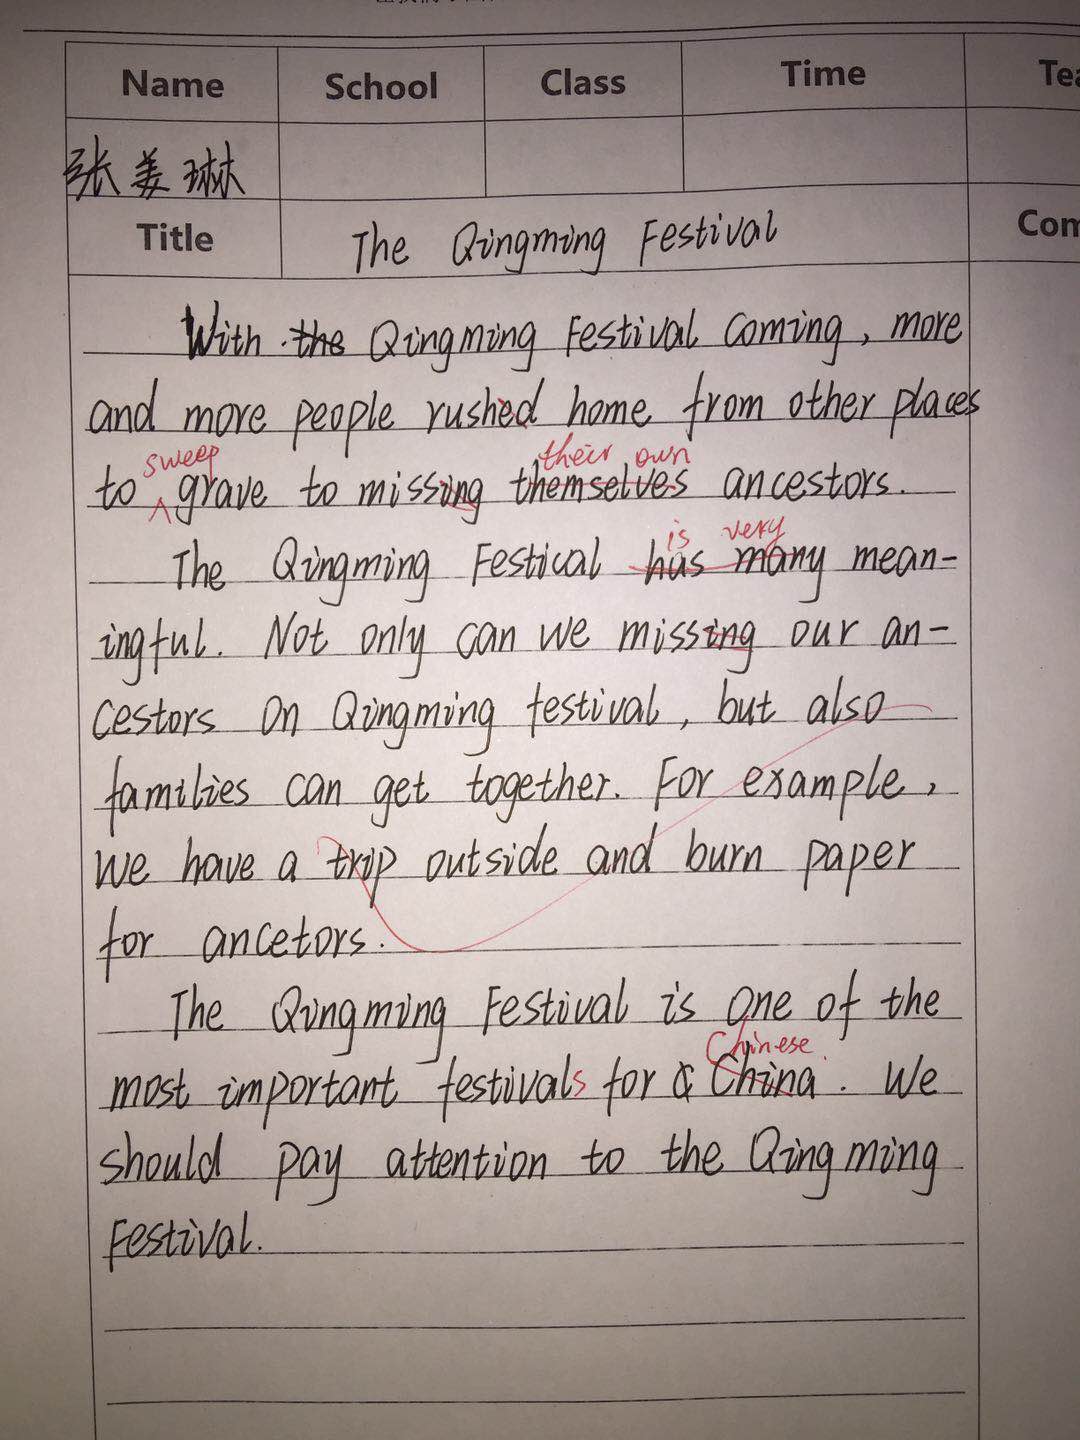 Name School Class Time
张姜琳
Title The Qingming Festival
With the Qingming Festival coming, more
and more people rushed home from other places
sweep their own
to grave to missing themselves ancestors.
is very
The Qingming Festival has many mean-
ingful. Not only can we missing our an-
cestors on Qingming festival, but also
families can get together. For example,
we have a trip outside and burn paper
for ancetors.
The Qingming Festival is one of the
Chinese
most important festivals for China. We
should pay attention to the Qingming
Festival.